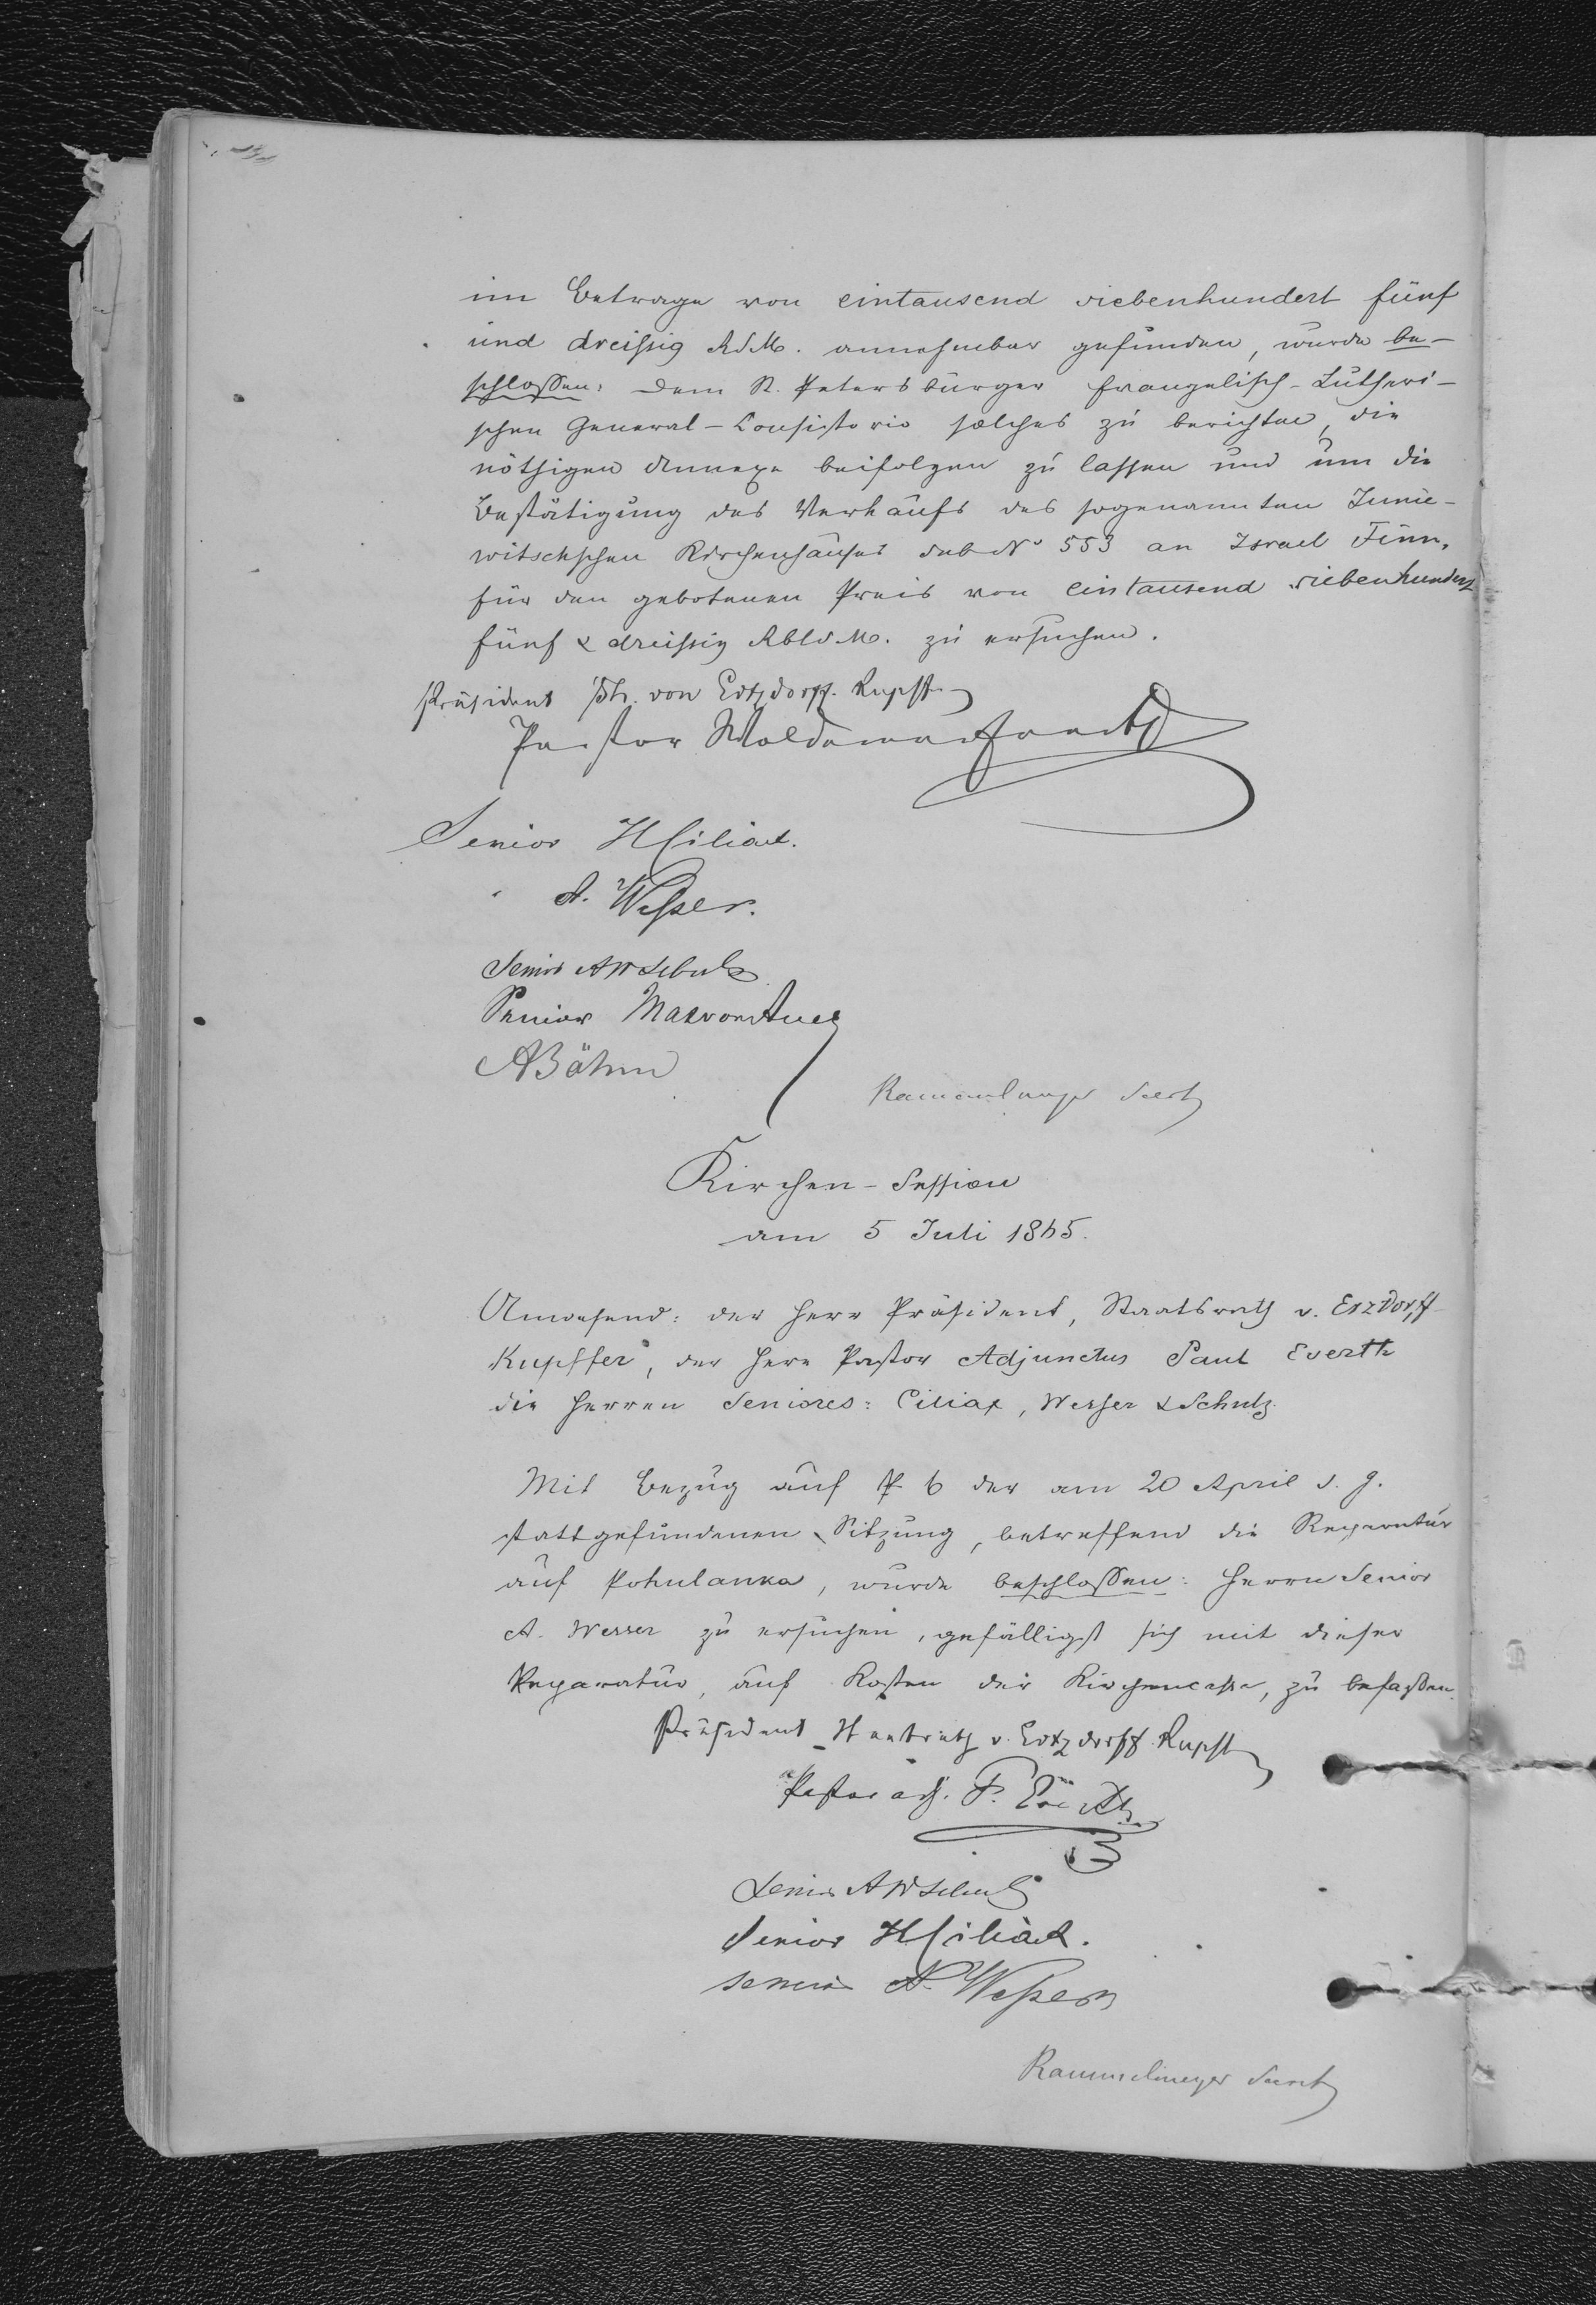 im Betrage von eintausend siebenhundert fünf
und dreißig RSM. annehmbar gefunden, wurde be-
schlossen: dem St. Petersburger Evangelisch-Lutheri-
schen General-Consistorio solches zu berichten, die
nöthigen Annexa beifolgen zu lassen und um die
Bestätigung des Verkaufs des sogenannten Junie-
witschschen Kirchenhauses sub No 553 an Israel Finn,
für den gebotenen Preis von eintausend siebenhundert
fünf & dreißig Rbl SM. zu ersuchen.
Präsident von Ertzdorff-Kupffer
Pastor Woldemar
Senior H Ciliax.
A. Wesser.
Senior A W Schulz
Senior
A Böhm
Rammelmeyer Secrt
Kirchen-Session
am 5 Juli 1865.
Anwesend: der Herr Präsident, Staatsrath v. Erzdorff
Kupffer, der Herr Pastor Adjunctus Paul Everth
die Herren Seniores: Ciliax, Wesser & Schulz.
Mit Bezug auf P. 6 der am 20 April d. J.
stattgefundenen Sitzung, betreffend die Reparatur
auf Pohulanka, wurde beschlossen: Herrn Senior
A. Wesser zu ersuchen, gefälligst sich mit dieser
Reparatur, auf Kosten der Kirchencasse, zu befassen.
Präsident v. Ertzdorff-Kupffer
Pastor adj. P. Everth
Senior A W Schulz
Senior H Ciliax.
Senior A. Wesser
Rammelmeyer Secrt